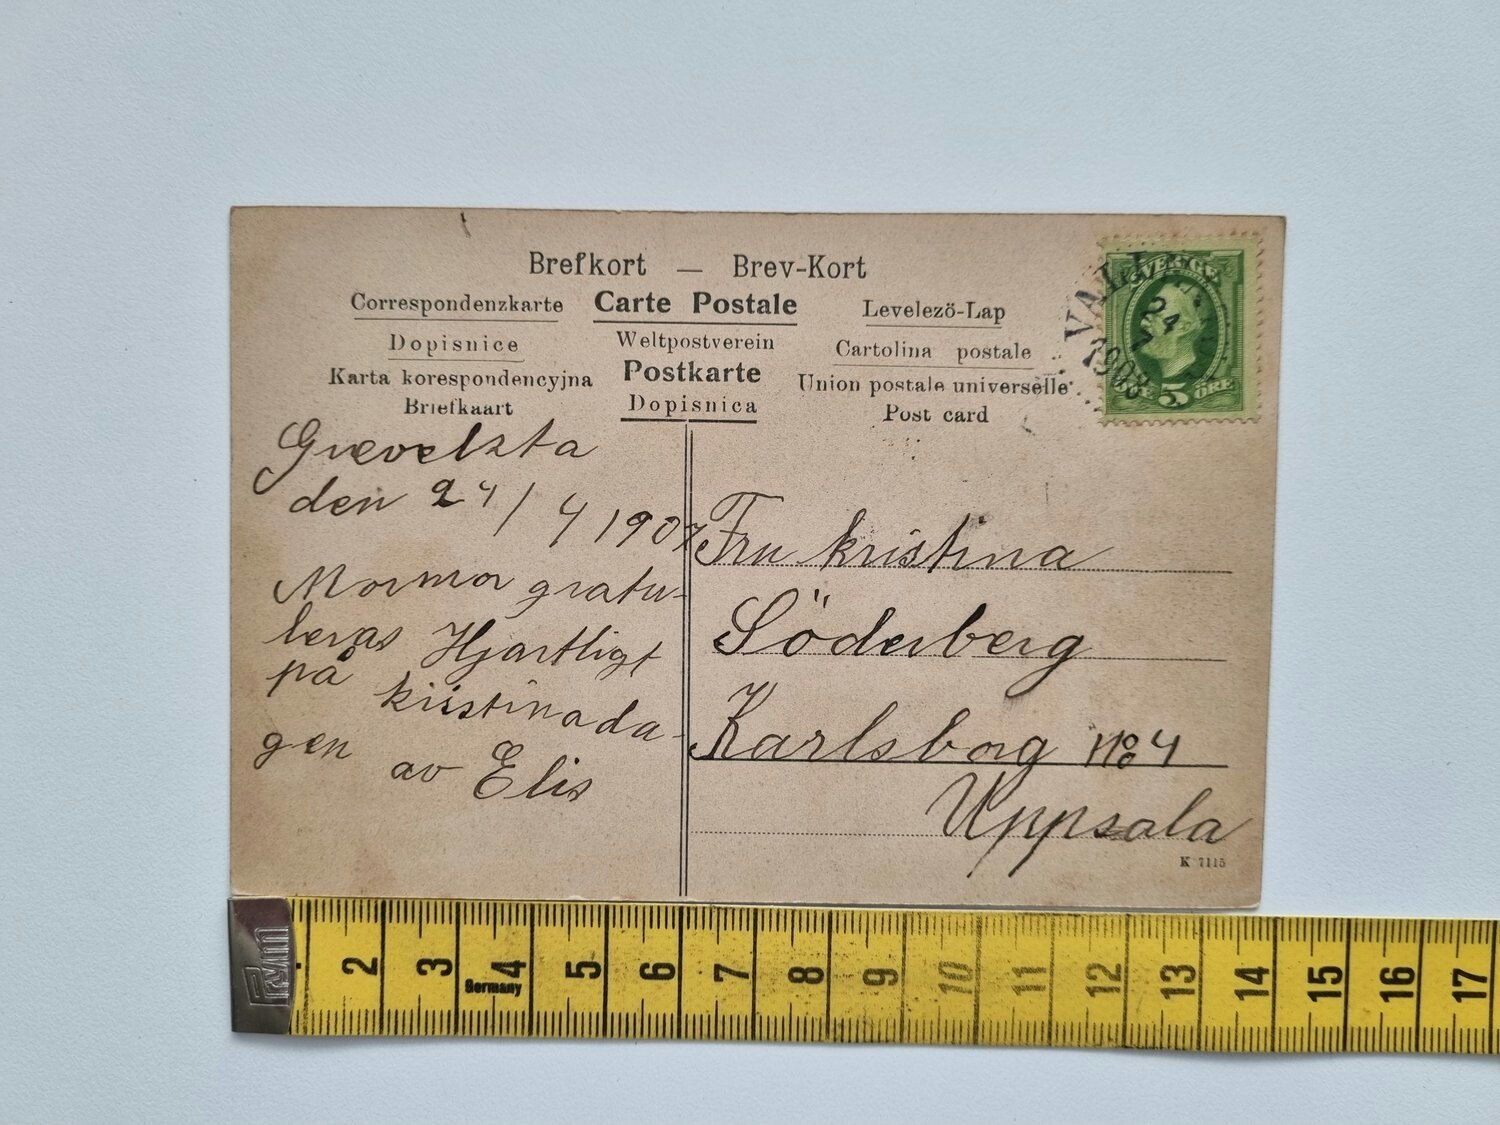 Brefkort — Brev-Kort
Correspondenzkarte Carte Postale Levelezö-Lap
Dopisnice Weltpostverein Cartolina postale
Karta korespondencyjna Postkarte Union postale universelle
Briefkaart Dopisnica Post card
SVERIGE
24
7
1908
5 ÖRE
Grevelsta
den 24/4 1907
Mormor gratu-
leras Hjärtligt
på kristinada-
gen av Elis
Fru kristina
Söderberg
Karlsborg No 4
Uppsala
K 7115
Prym
2 3 4 5 6 7 8 9 10 11 12 13 14 15 16 17
Germany